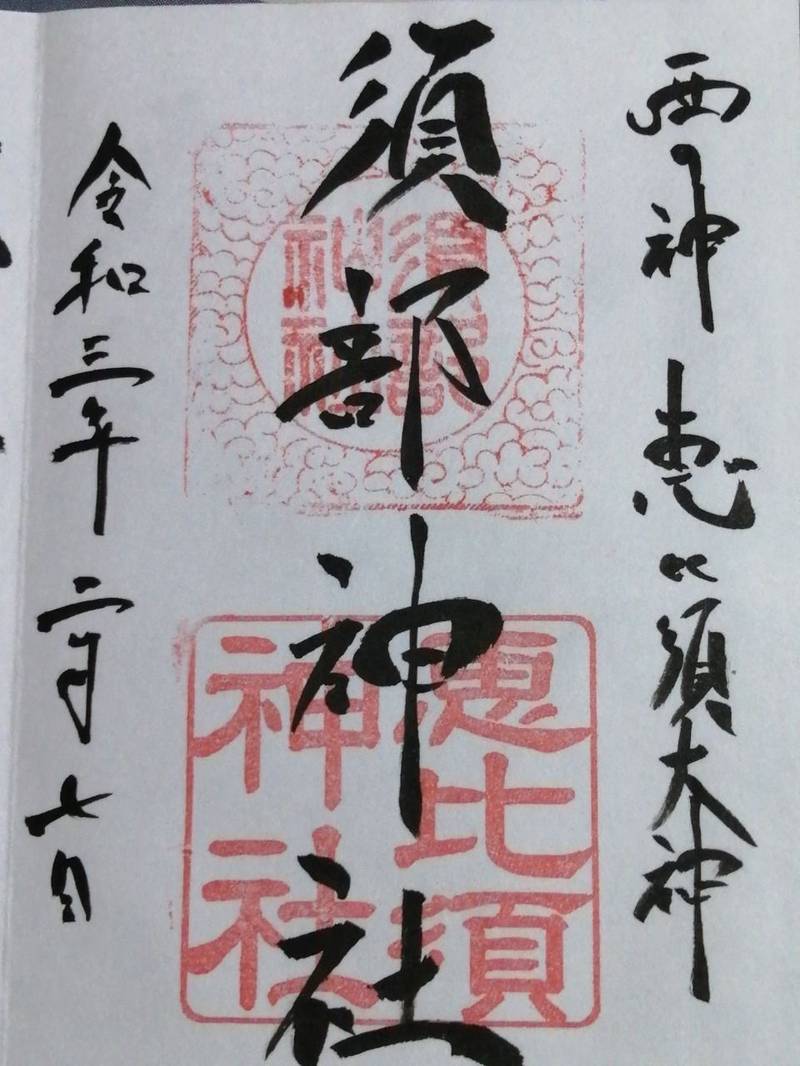 西の神 恵比須大神
須部神社
須部神社
恵比須神社
令和三年二月七日